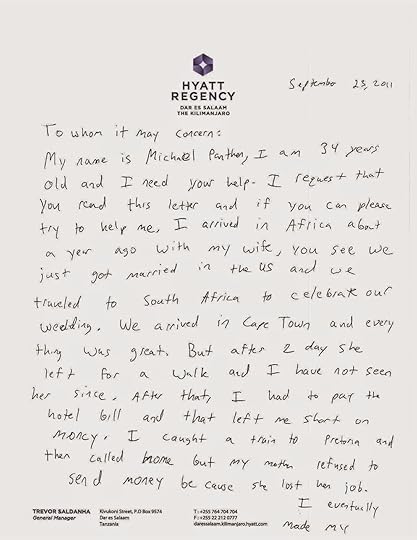 HYATT
REGENCY
DAR ES SALAAM
THE KILIMANJARO
September 23, 2011
To whom it may concern:
My name is Michael Panthon, I am 34 years
old and I need your help. I request that
you read this letter and if you can please
try to help me, I arrived in Africa about
a year ago with my wife, you see we
just got married in the US and we
traveled to South Africa to celebrate our
wedding. We arrived in Cape Town and every
thing was great. But after 2 day she
left for a walk and I have not seen
her since. After that, I had to pay the
hotel bill and that left me short on
money. I caught a train to Pretoria and
then called home but my mother refused to
send money because she lost her job.
I eventually
made my
TREVOR SALDANHA
General Manager
Kivukoni Street, P.O Box 9574
Dar es Salaam
Tanzania
T: +255 764 704 704
F: +255 22 212 0777
daressalaam.kilimanjaro.hyatt.com